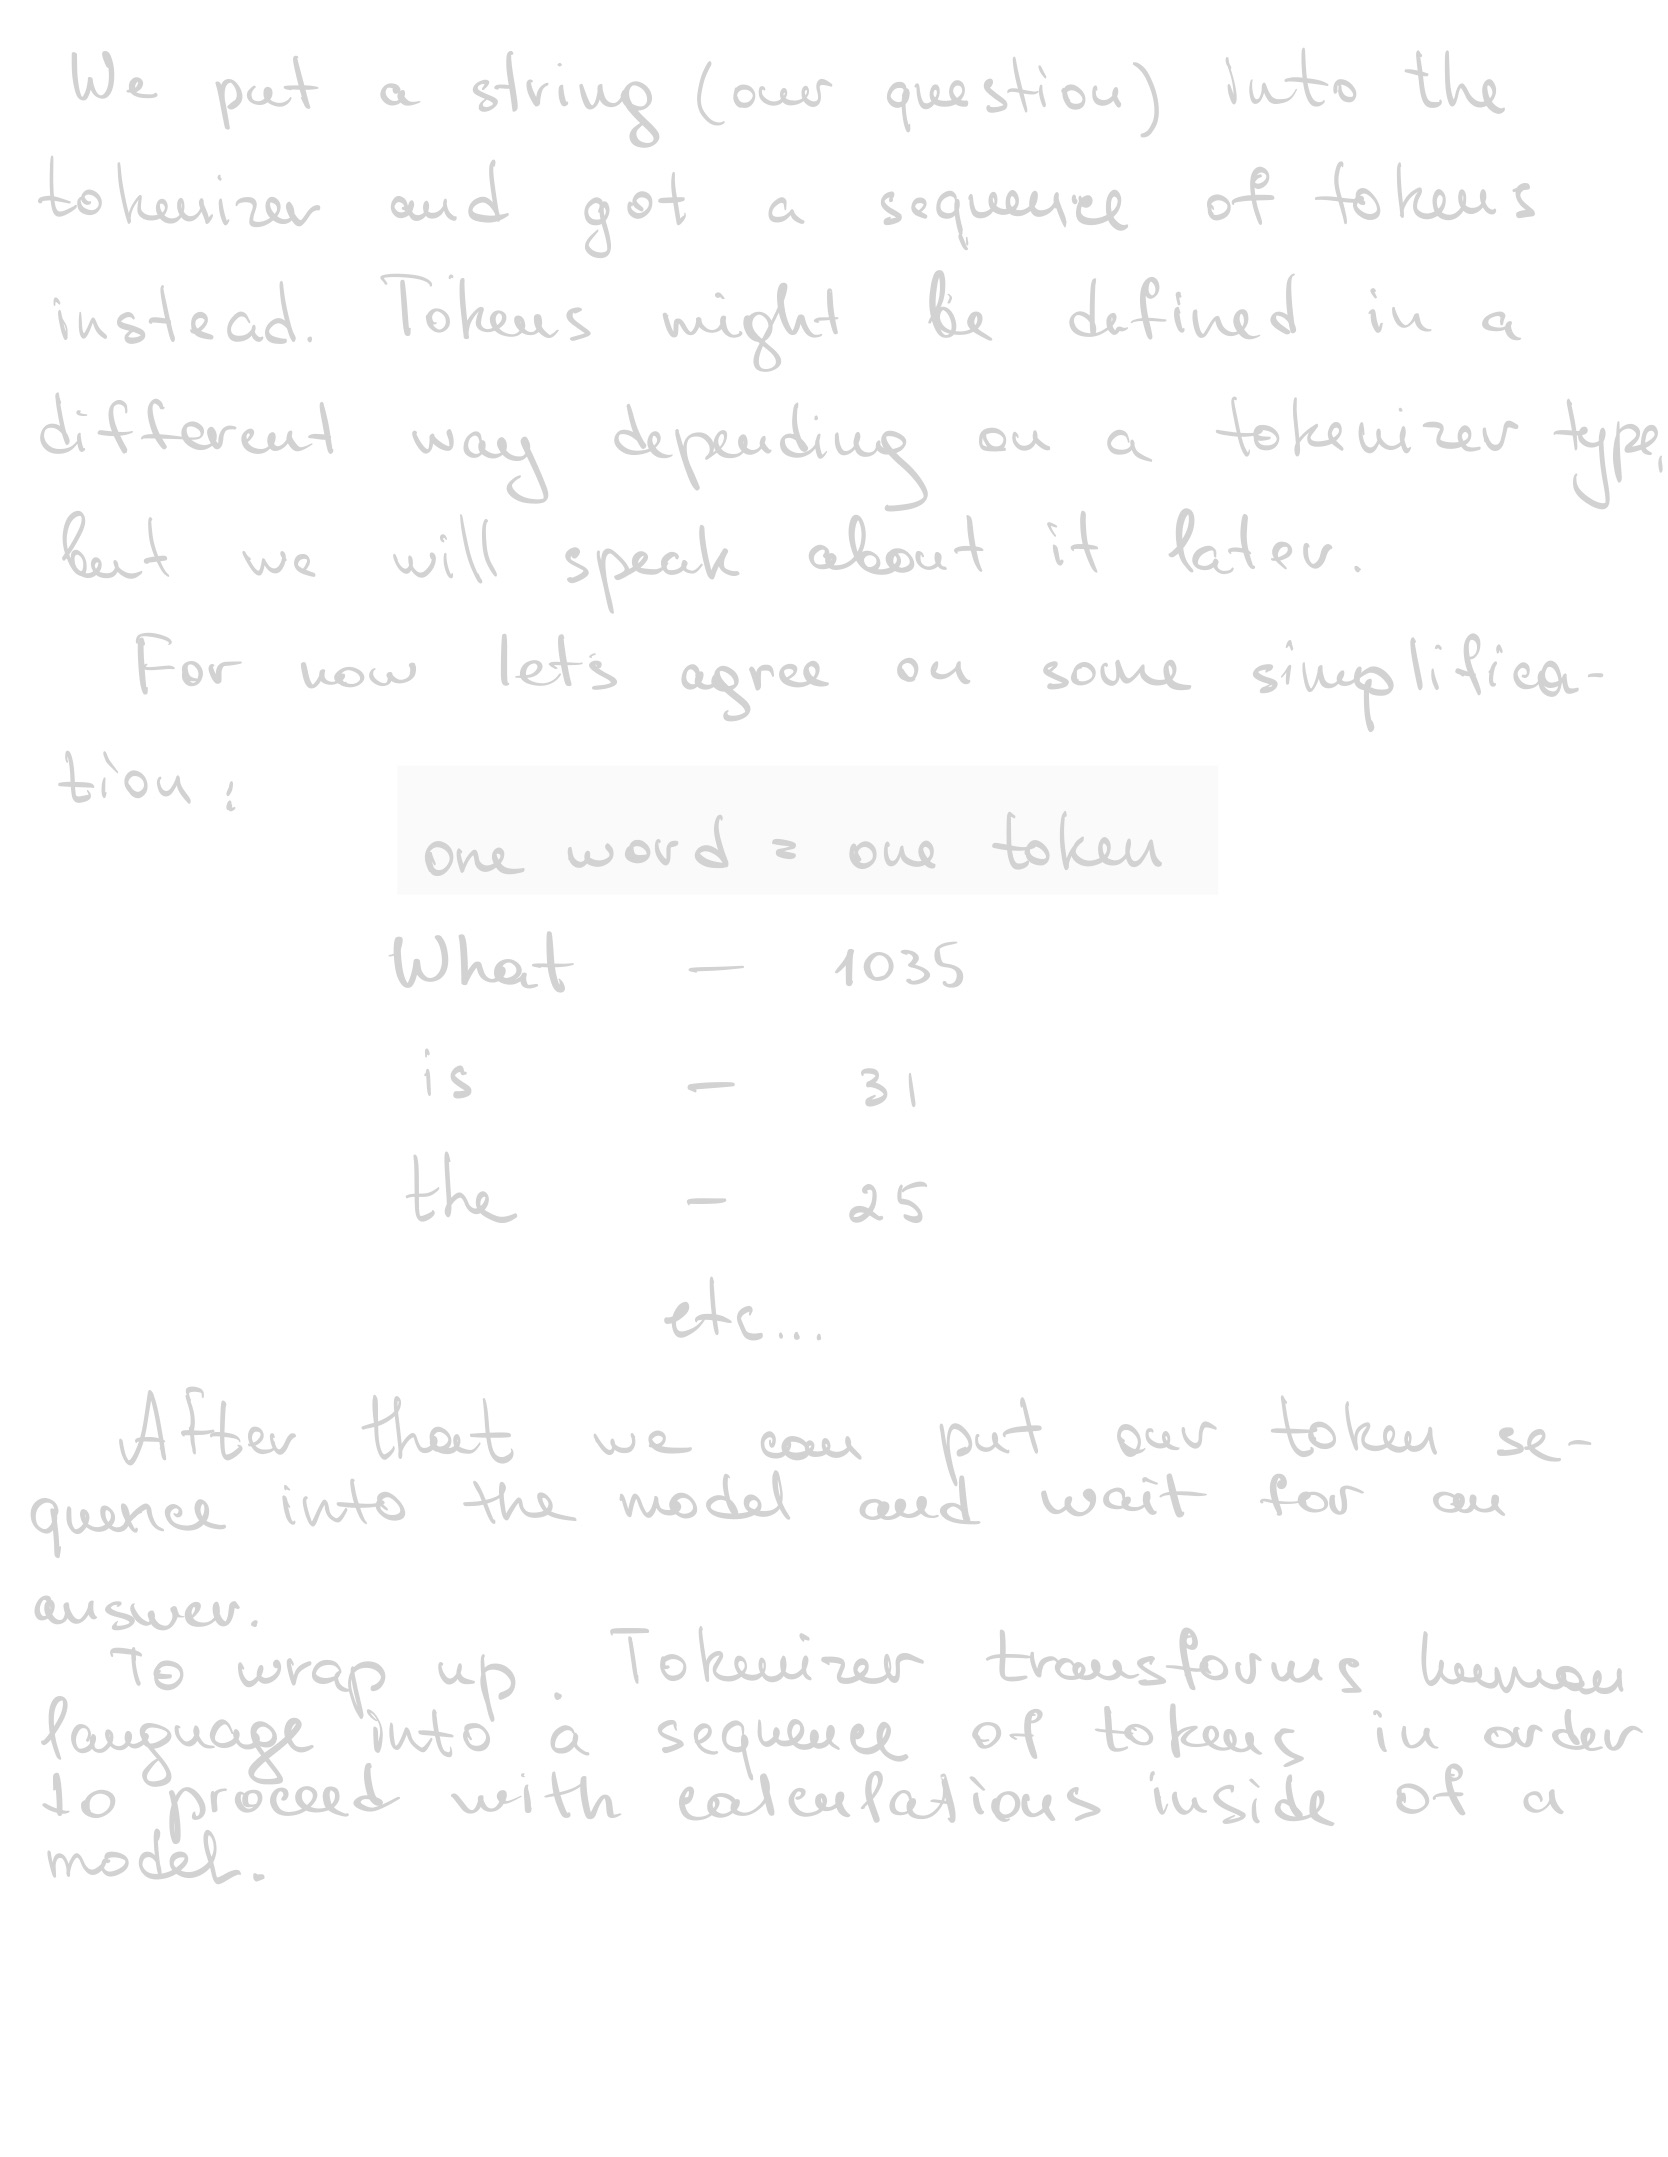 We put a string (our question) into the
tokenizer and got a sequence of tokens
instead. Tokens might be defined in a
different way depending on a tokenizer type,
but we will speak about it later.
For now let's agree on some simplifica-
tion:
one word = one token
What — 1035
is — 31
the — 25
etc...
After that we can put our token se-
quence into the model and wait for an
answer.
To wrap up. Tokenizer transforms human
language into a sequence of tokens in order
to proceed with calculations inside of a
model.